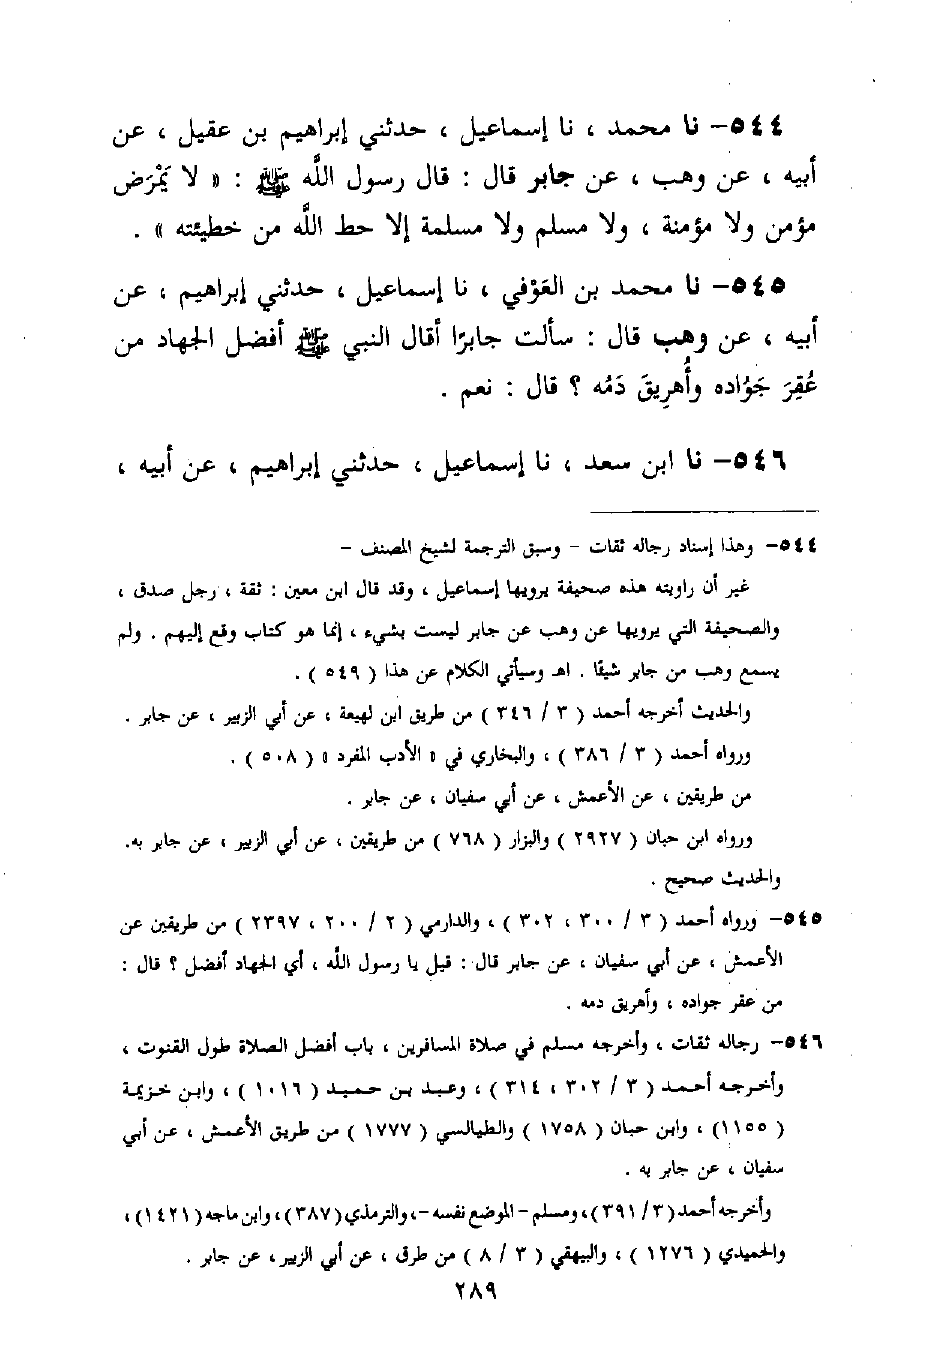 ٥٤٤– نا محمد ، نا إسماعيل ، حدثني إبراهيم بن عقيل ، عن
أبيه ، عن وهب ، عن جابر قال : قال رسول اللَّه ﷺ : « لا يَمْرَض
مؤمن ولا مؤمنة ، ولا مسلم ولا مسلمة إلا حط اللَّه من خطيئته » .
٥٤٥– نا محمد بن العَوْفي ، نا إسماعيل ، حدثني إبراهيم ، عن
أبيه ، عن وهب قال : سألت جابرًا أقال النبي ﷺ أفضل الجهاد من
عُقِرَ جَوُاده وأُهرِيقَ دَمُه ؟ قال : نعم .
٥٤٦– نا ابن سعد ، نا إسماعيل ، حدثني إبراهيم ، عن أبيه ،
٥٤٤– وهذا إسناد رجاله ثقات – وسبق الترجمة لشيخ المصنف –
غير أن راويته هذه صحيفة يرويها إسماعيل ، وقد قال ابن معين : ثقة ، رجل صدق ،
والصحيفة التي يرويها عن وهب عن جابر ليست بشيء ، إنما هو كتاب وقع إليهم . ولم
يسمع وهب من جابر شيئًا . اهـ وسيأتي الكلام عن هذا ( ٥٤٩ ) .
والحديث أخرجه أحمد ( ٣ / ٣٤٦ ) من طريق ابن لهيعة ، عن أبي الزبير ، عن جابر .
ورواه أحمد ( ٣ / ٣٨٦ ) ، والبخاري في « الأدب المفرد » ( ٥٠٨ ) .
من طريقين ، عن الأعمش ، عن أبي سفيان ، عن جابر .
ورواه ابن حبان ( ٢٩٢٧ ) والبزار ( ٧٦٨ ) من طريقين ، عن أبي الزبير ، عن جابر به.
والحديث صحيح .
٥٤٥– ورواه أحمد ( ٣ / ٣٠٠ ، ٣٠٢ ) ، والدارمي ( ٢ / ٢٠٠ ، ٢٣٩٧ ) من طريقين عن
الأعمش ، عن أبي سفيان ، عن جابر قال : قيل يا رسول اللَّه ، أي الجهاد أفضل ؟ قال :
من عقر جواده ، وأهريق دمه .
٥٤٦– رجاله ثقات ، وأخرجه مسلم في صلاة المسافرين ، باب أفضل الصلاة طول القنوت ،
وأخرجه أحمد ( ٣ / ٣٠٢ ، ٣١٤ ) ، وعبد بن حميد ( ١٠١٦ ) ، وابن خزيمة
( ١١٥٥ ) ، وابن حبان ( ١٧٥٨ ) والطيالسي ( ١٧٧٧ ) من طريق الأعمش ، عن أبي
سفيان ، عن جابر به .
وأخرجه أحمد (٣ / ٣٩١) ، ومسلم – الموضع نفسه – ، والترمذي (٣٨٧) ، وابن ماجه (١٤٢١) ،
والحميدي ( ١٢٧٦ ) ، والبيهقي ( ٣ / ٨ ) من طرق ، عن أبي الزبير ، عن جابر .
٢٨٩